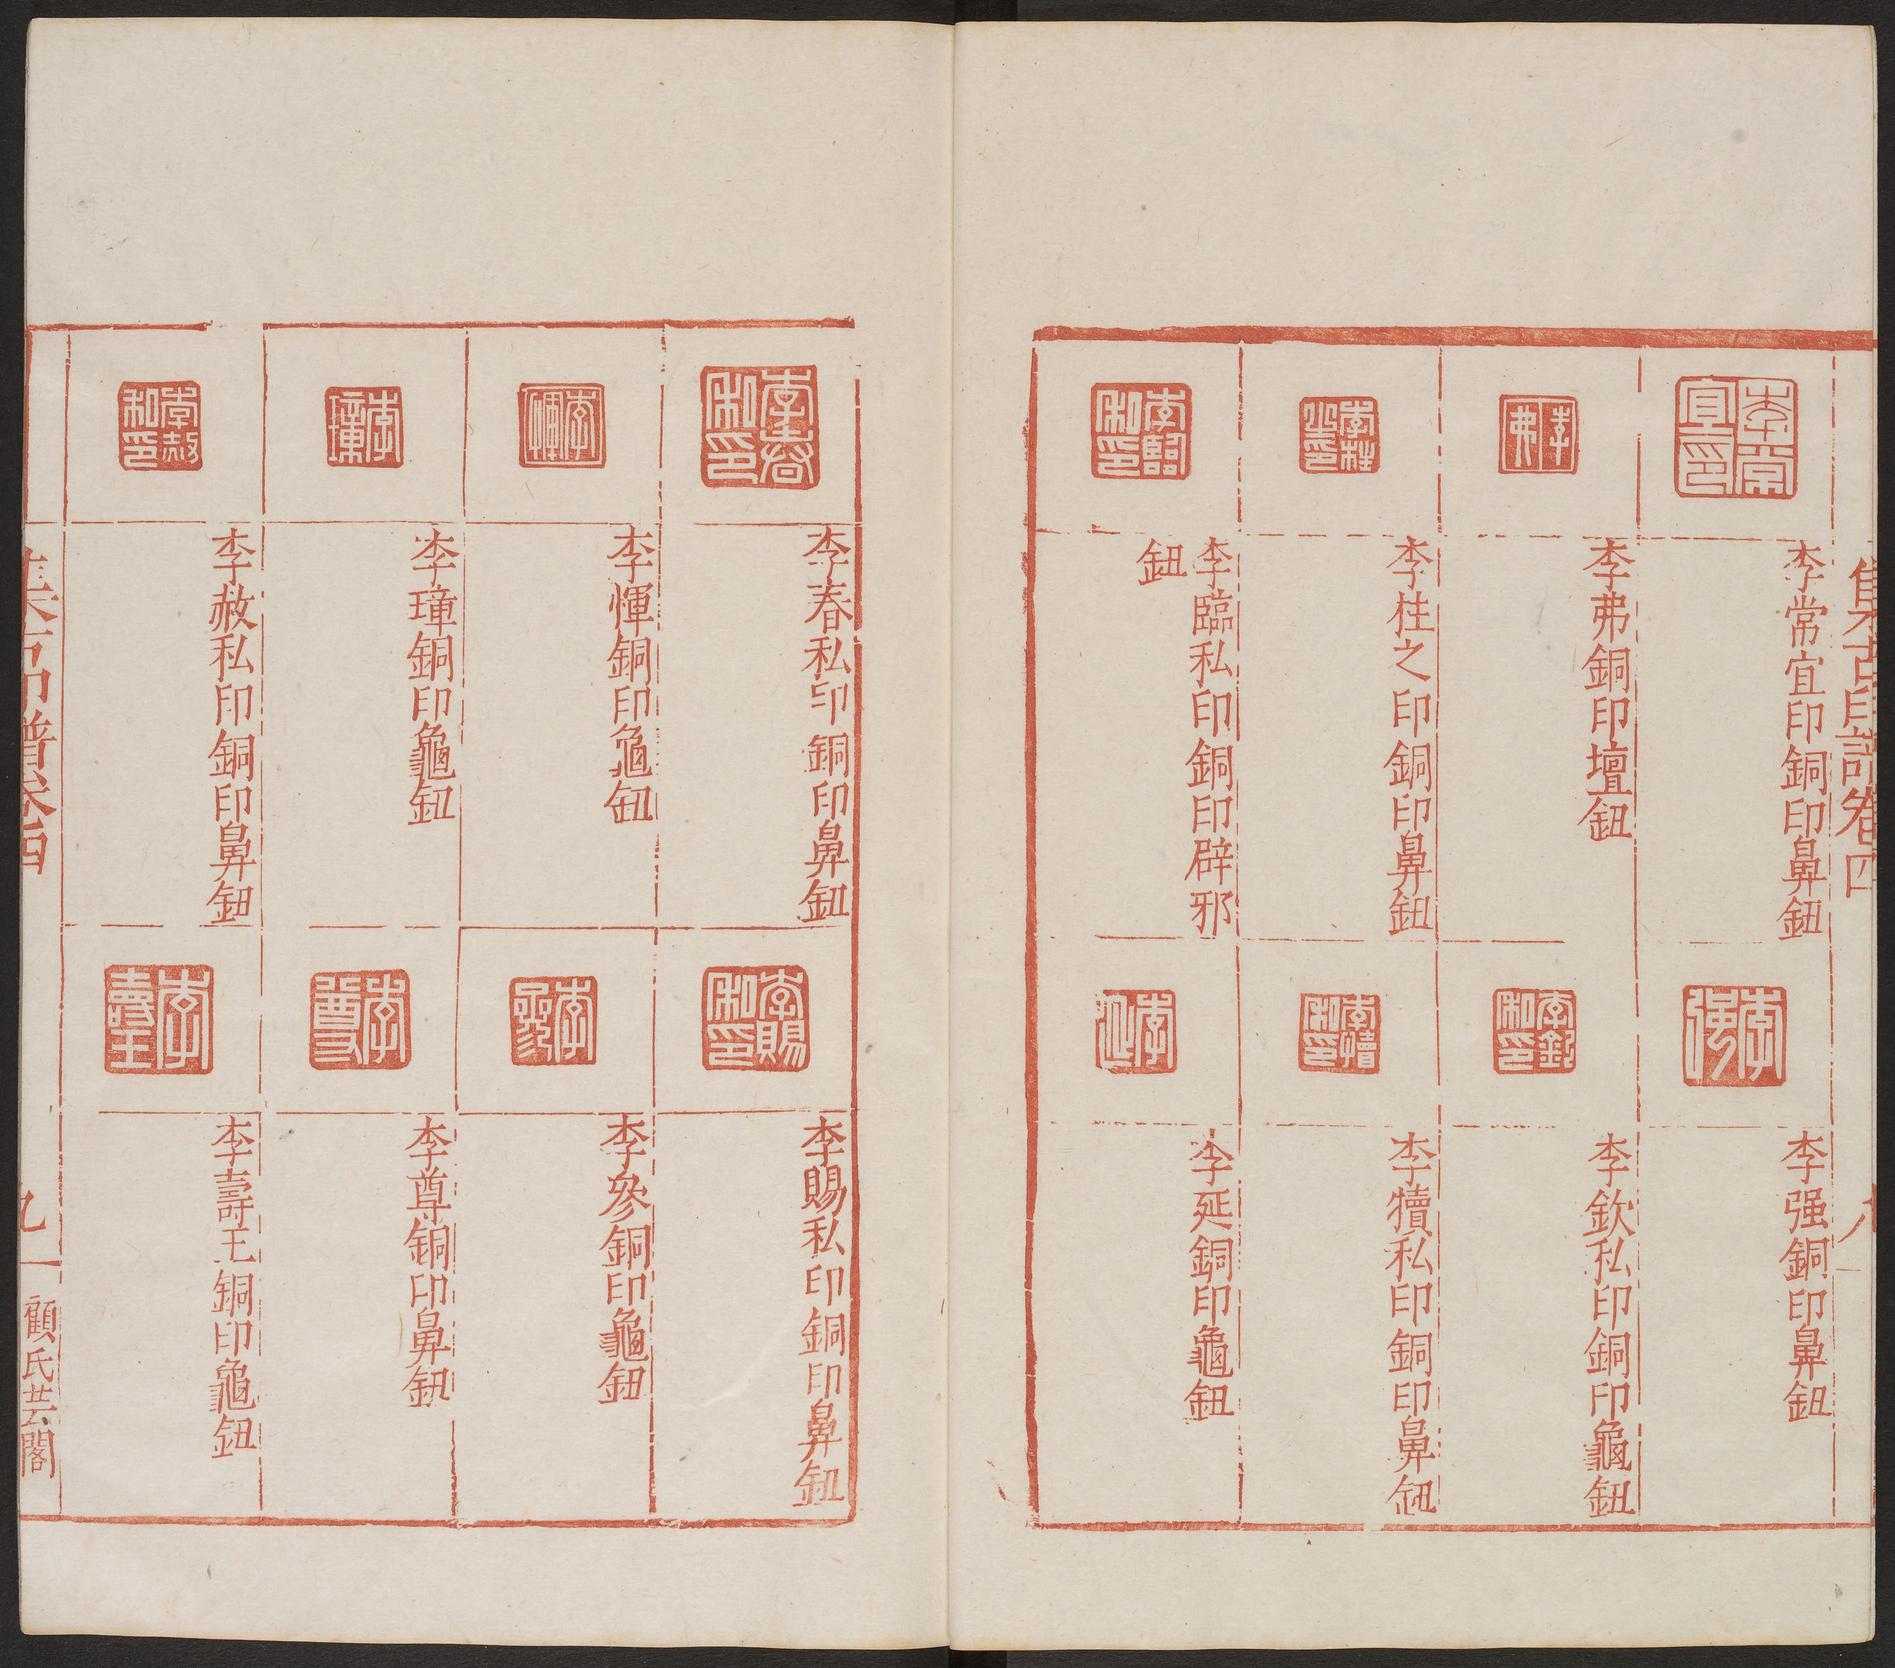 集古印譜卷四
八
李常宜印銅印鼻鈕
李弗銅印壇鈕
李柱之印銅印鼻鈕
李臨私印銅印辟邪
鈕
李强銅印鼻鈕
李欽私印銅印龜鈕
李犢私印銅印鼻鈕
李延銅印龜鈕
李春私印銅印鼻鈕
李惲銅印龜鈕
李璋銅印龜鈕
李赦私印銅印鼻鈕
李賜私印銅印鼻鈕
李參銅印龜鈕
李尊銅印鼻鈕
李壽王銅印龜鈕
集古印譜卷四
九
顧氏芸閣